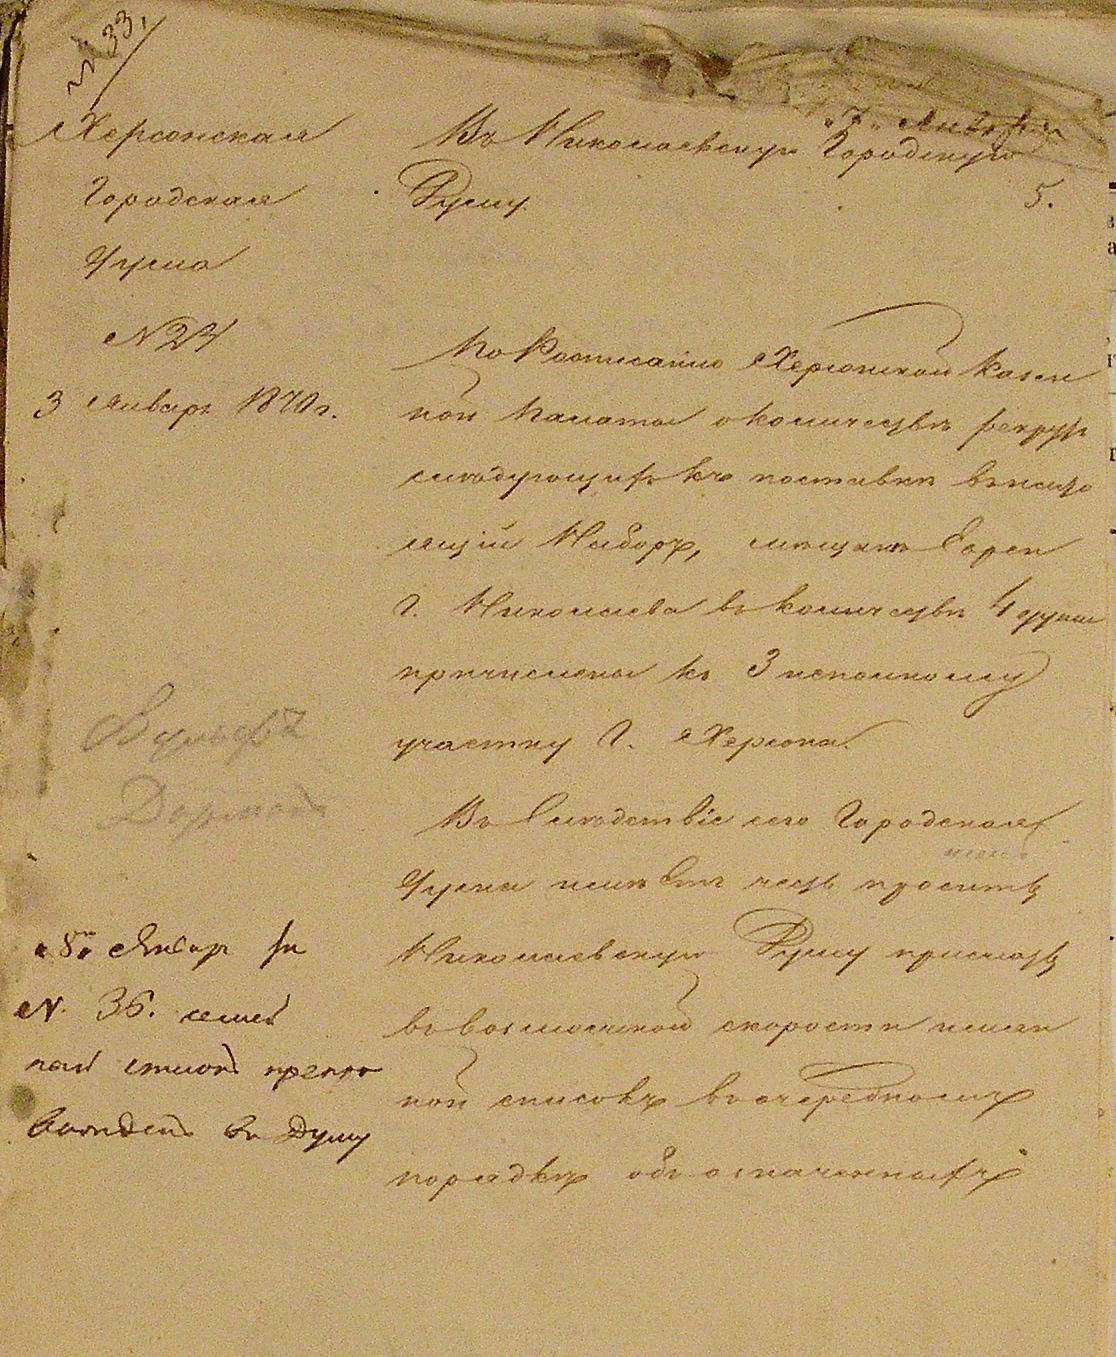 № 33,
Херсонская
Городская
Дума
№ 24
3 Января 1870 г.
"7" Января
Въ Николаевскую Городскую
Думу.
5.
По Росписанію Херсонской Казен
ной Палаты о количествѣ рекрутъ
слѣдующихъ къ поставкѣ въ насто
ящій Наборъ, мѣщане Евреи
г. Николаева въ количествѣ 4 души
причислены къ 3 неполному
участку г. Херсона.
Въ слѣдствіе сего Городская
Дума имѣетъ честь просить
Николаевскую Думу прислать
въ возможной скорости имян
ной списокъ въ очередномъ
порядкѣ объ означенныхъ
"8" Января за
№. 36. семей
ный списокъ препро
вожденъ въ Думу